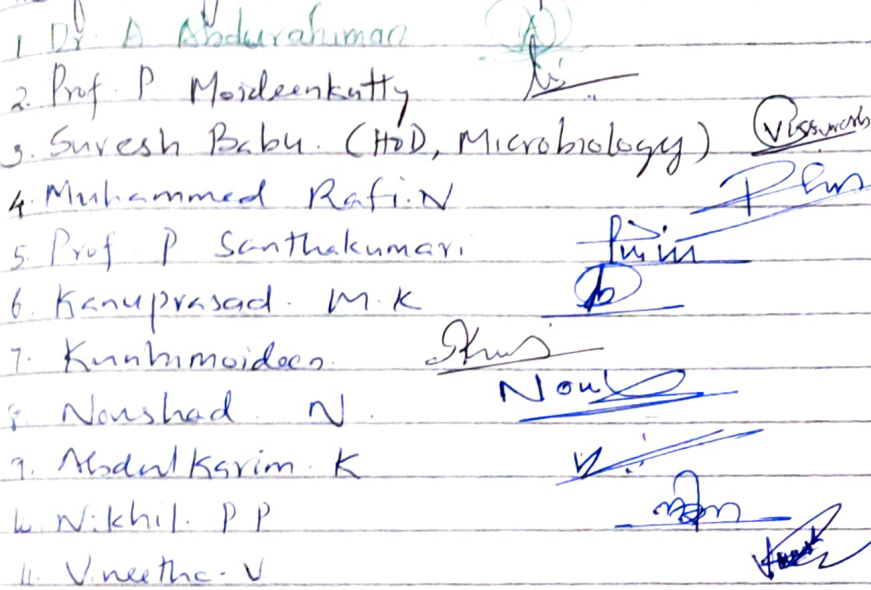 1 Dr. A Abdurahiman
2. Prof. P Moideenkutty
3. Suresh Babu. (HoD, Microbiology)
4. Muhammed Rafi. N
5. Prof P Santhakumari
6. Kanuprasad. M. K
7. Kunhimoideen
8 Noushad N.
9. Abdul Karim. K
10. Nikhil. P P
11. Vineetha. V